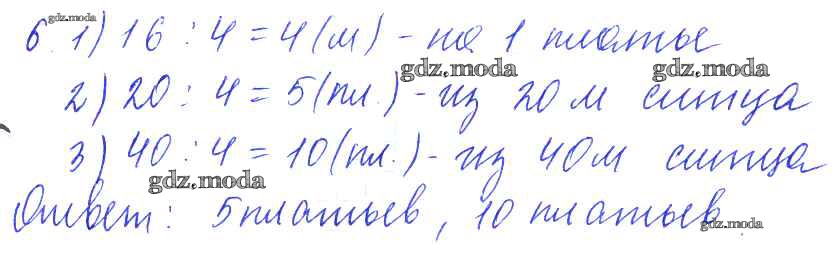 gdz.moda
6. 1) 16 : 4 = 4 (м) - на 1 платье
gdz.moda gdz.moda
2) 20 : 4 = 5 (пл.) - из 20 м ситца
3) 40 : 4 = 10 (пл.) - из 40 м ситца
gdz.moda
Ответ: 5 платьев, 10 платьев.
gdz.moda